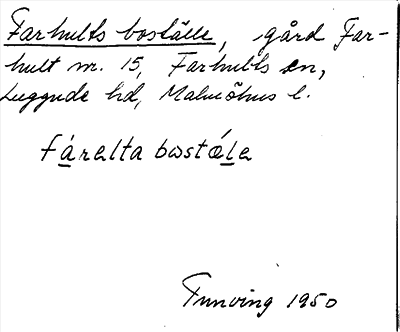 Farhults boställe, gård Far-
hult nr. 15, Farhults sn,
Luggude hd, Malmöhus l.
fárelta bostǽle
Tunving 1950